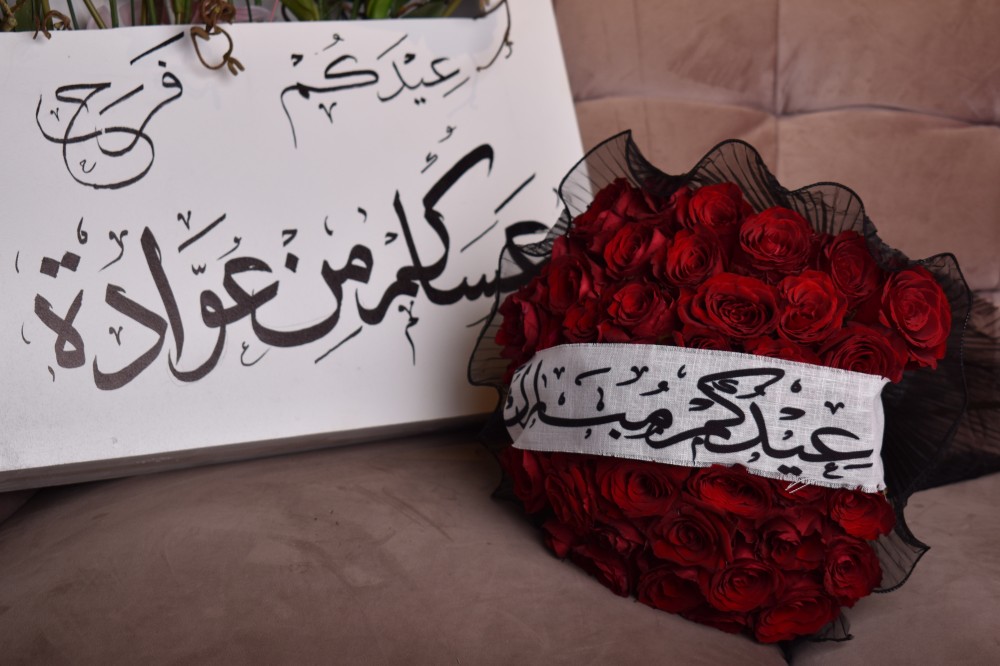 عِيْدُكُمْ فَرَح
عَسَاكُم مِن عَوَّادَة
عِيْدُكُمْ مُبَارَك